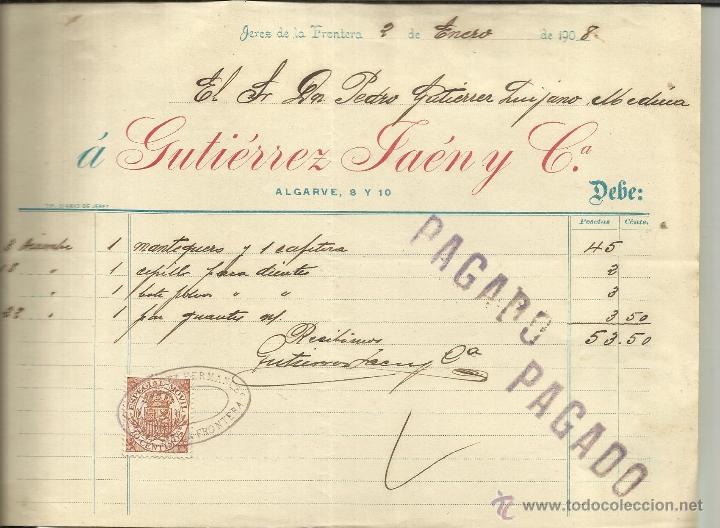 Jerez de la Frontera 2 de Enero de 1908.
El Sr Dn Pedro Gutierrez Quijano Medina
á Gutiérrez Jaén y C.ª
ALGARVE, 8 Y 10
Debe:
TIP. DIARIO DE JEREZ
Pesetas Cénts.
8 Diciembre 1 mantequera y 1 cafetera 45
18 " 1 cepillo para dientes 2
1 bote polvos " " 3
22 " 1 par guantes 3 50
Recibimos 53.50
Gutierrez Jaen y Cª
PAGADO
PAGADO
HERMANOS
FRONTERA
ESPECIAL MOVIL
10 CENTIMOS
www.todocoleccion.net